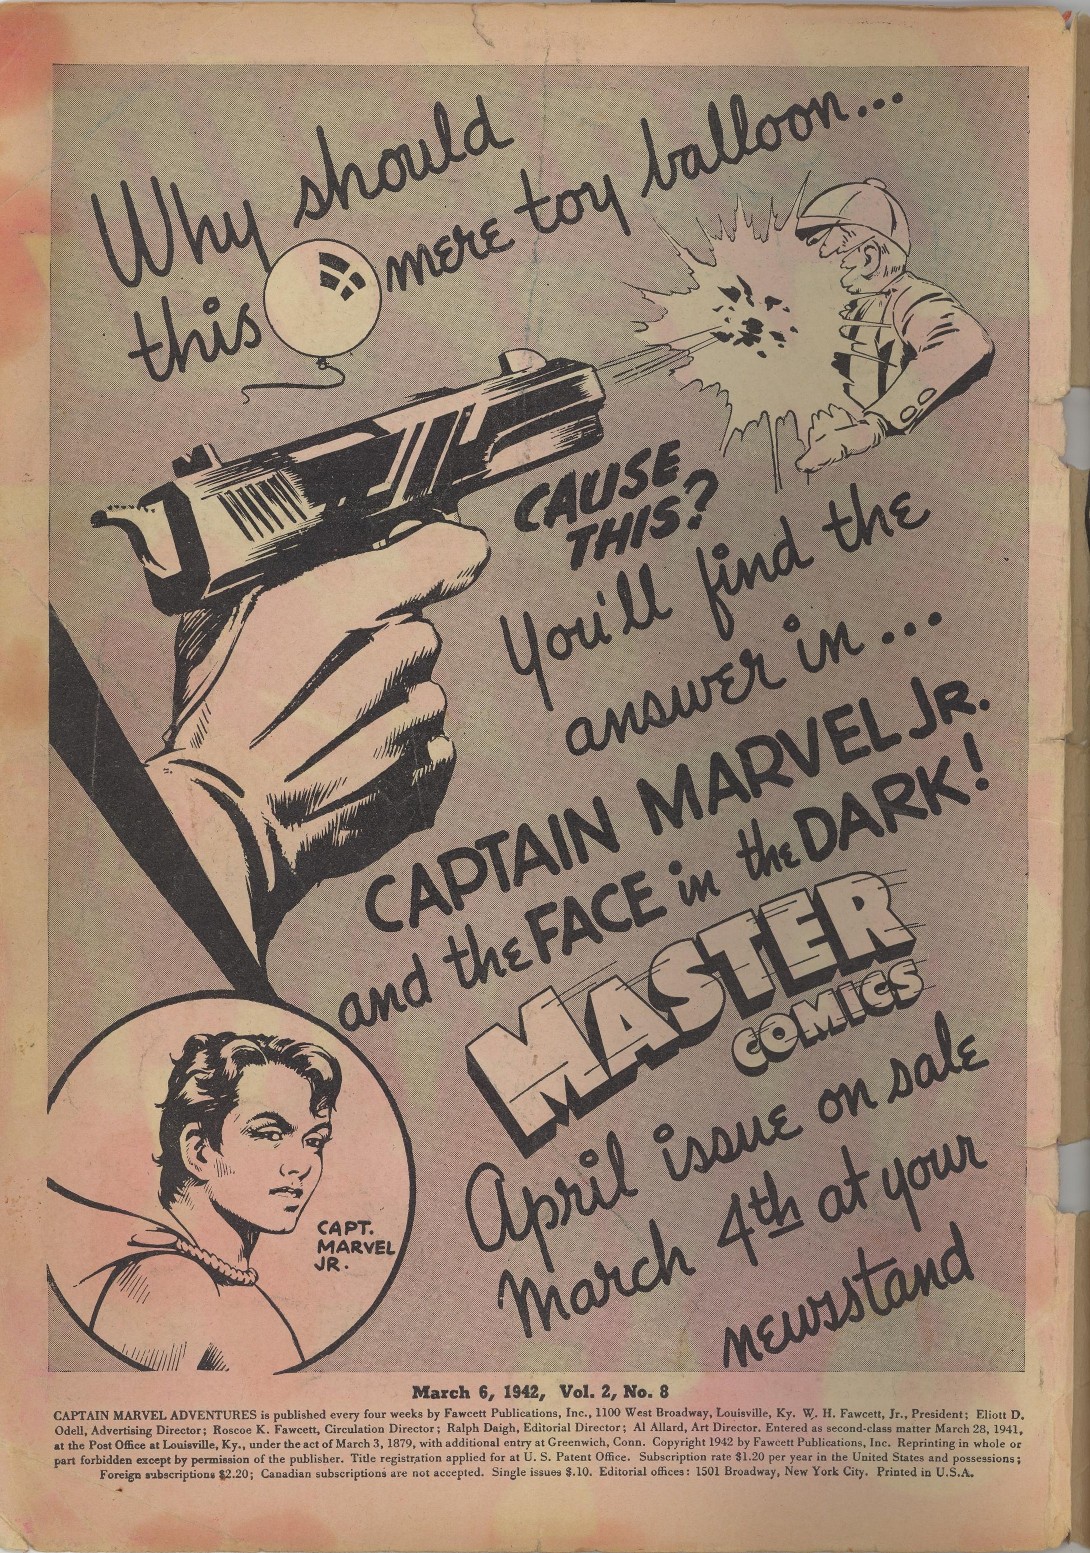 Why should
this mere toy balloon...
CAUSE
THIS?
You'll find the
answer in...
CAPTAIN MARVEL JR.
and the FACE in the DARK!
MASTER
COMICS
April issue on sale
March 4th at your
newsstand
CAPT.
MARVEL
JR.
March 6, 1942, Vol. 2, No. 8
CAPTAIN MARVEL ADVENTURES is published every four weeks by Fawcett Publications, Inc., 1100 West Broadway, Louisville, Ky. W. H. Fawcett, Jr., President; Eliott D.
Odell, Advertising Director; Roscoe K. Fawcett, Circulation Director; Ralph Daigh, Editorial Director; Al Allard, Art Director. Entered as second-class matter March 28, 1941,
at the Post Office at Louisville, Ky., under the act of March 3, 1879, with additional entry at Greenwich, Conn. Copyright 1942 by Fawcett Publications, Inc. Reprinting in whole or
part forbidden except by permission of the publisher. Title registration applied for at U. S. Patent Office. Subscription rate $1.20 per year in the United States and possessions;
Foreign subscriptions $2.20; Canadian subscriptions are not accepted. Single issues $.10. Editorial offices: 1501 Broadway, New York City. Printed in U.S.A.